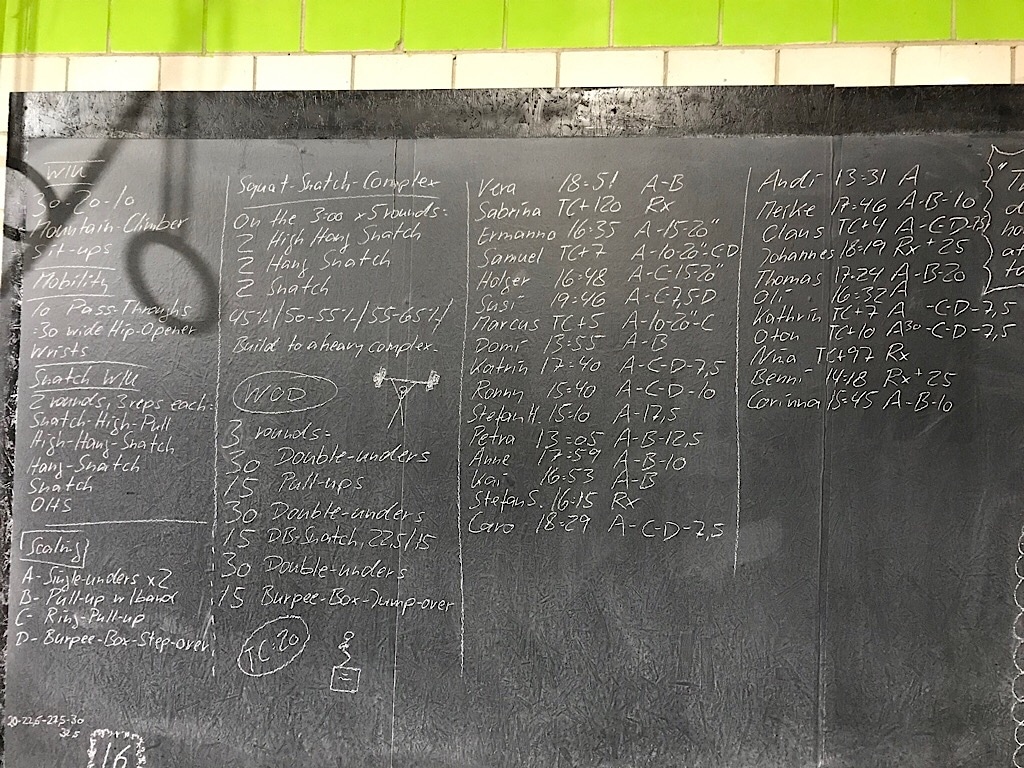 WU
30-20-10
Mountain-Climber
Sit-ups
Mobility
10 Pass-Throughs
:30 wide Hip-Opener
Wrists
Snatch WU
2 rounds, 3 reps each:
Snatch-High-Pull
High-Hang-Snatch
Hang-Snatch
Snatch
OHS
Scaling
A- Single-unders x2
B- Pull-up w/band
C- Ring-Pull-up
D- Burpee-Box-Step-over
20-22,5-27,5-30
32,5
16
Squat-Snatch-Complex
On the 3:00 x 5 rounds:
2 High Hang Snatch
2 Hang Snatch
2 Snatch
45%/50-55%/55-65%/
Build to a heavy complex.
WOD
3 rounds:
30 Double-unders
15 Pull-ups
30 Double-unders
15 DB-Snatch, 22,5/15
30 Double-unders
15 Burpee-Box-Jump-over
TC:20
Vera 18:51 A-B
Sabrina TC+120 Rx
Ermanno 16:35 A-15-20"
Samuel TC+7 A-10-20"-C-D
Holger 16:48 A-C-15-20"
Susi 19:46 A-C-7,5-D
Marcus TC+5 A-10-20"-C
Domi 13:55 A-B
Katrin 17:40 A-C-D-7,5
Ronny 15:40 A-C-D-10
Stefan H. 15:10 A-17,5
Petra 13:05 A-B-12,5
Anne 17:59 A-B-10
Kai 16:53 A-B
Stefan S. 16:15 Rx
Caro 18:29 A-C-D-7,5
Andi 13:31 A
Meike 17:46 A-B-10
Claus TC+4 A-C-D-
Johannes 18:19 Rx+25
Thomas 17:24 A-B-20
Oli 16:32 A
Kathrin TC+7 A -C-D-7,5
Oton TC+10 A30-C-D-7,5
Nina TC+97 Rx
Benni 14:18 Rx+25
Corinna 15:45 A-B-10